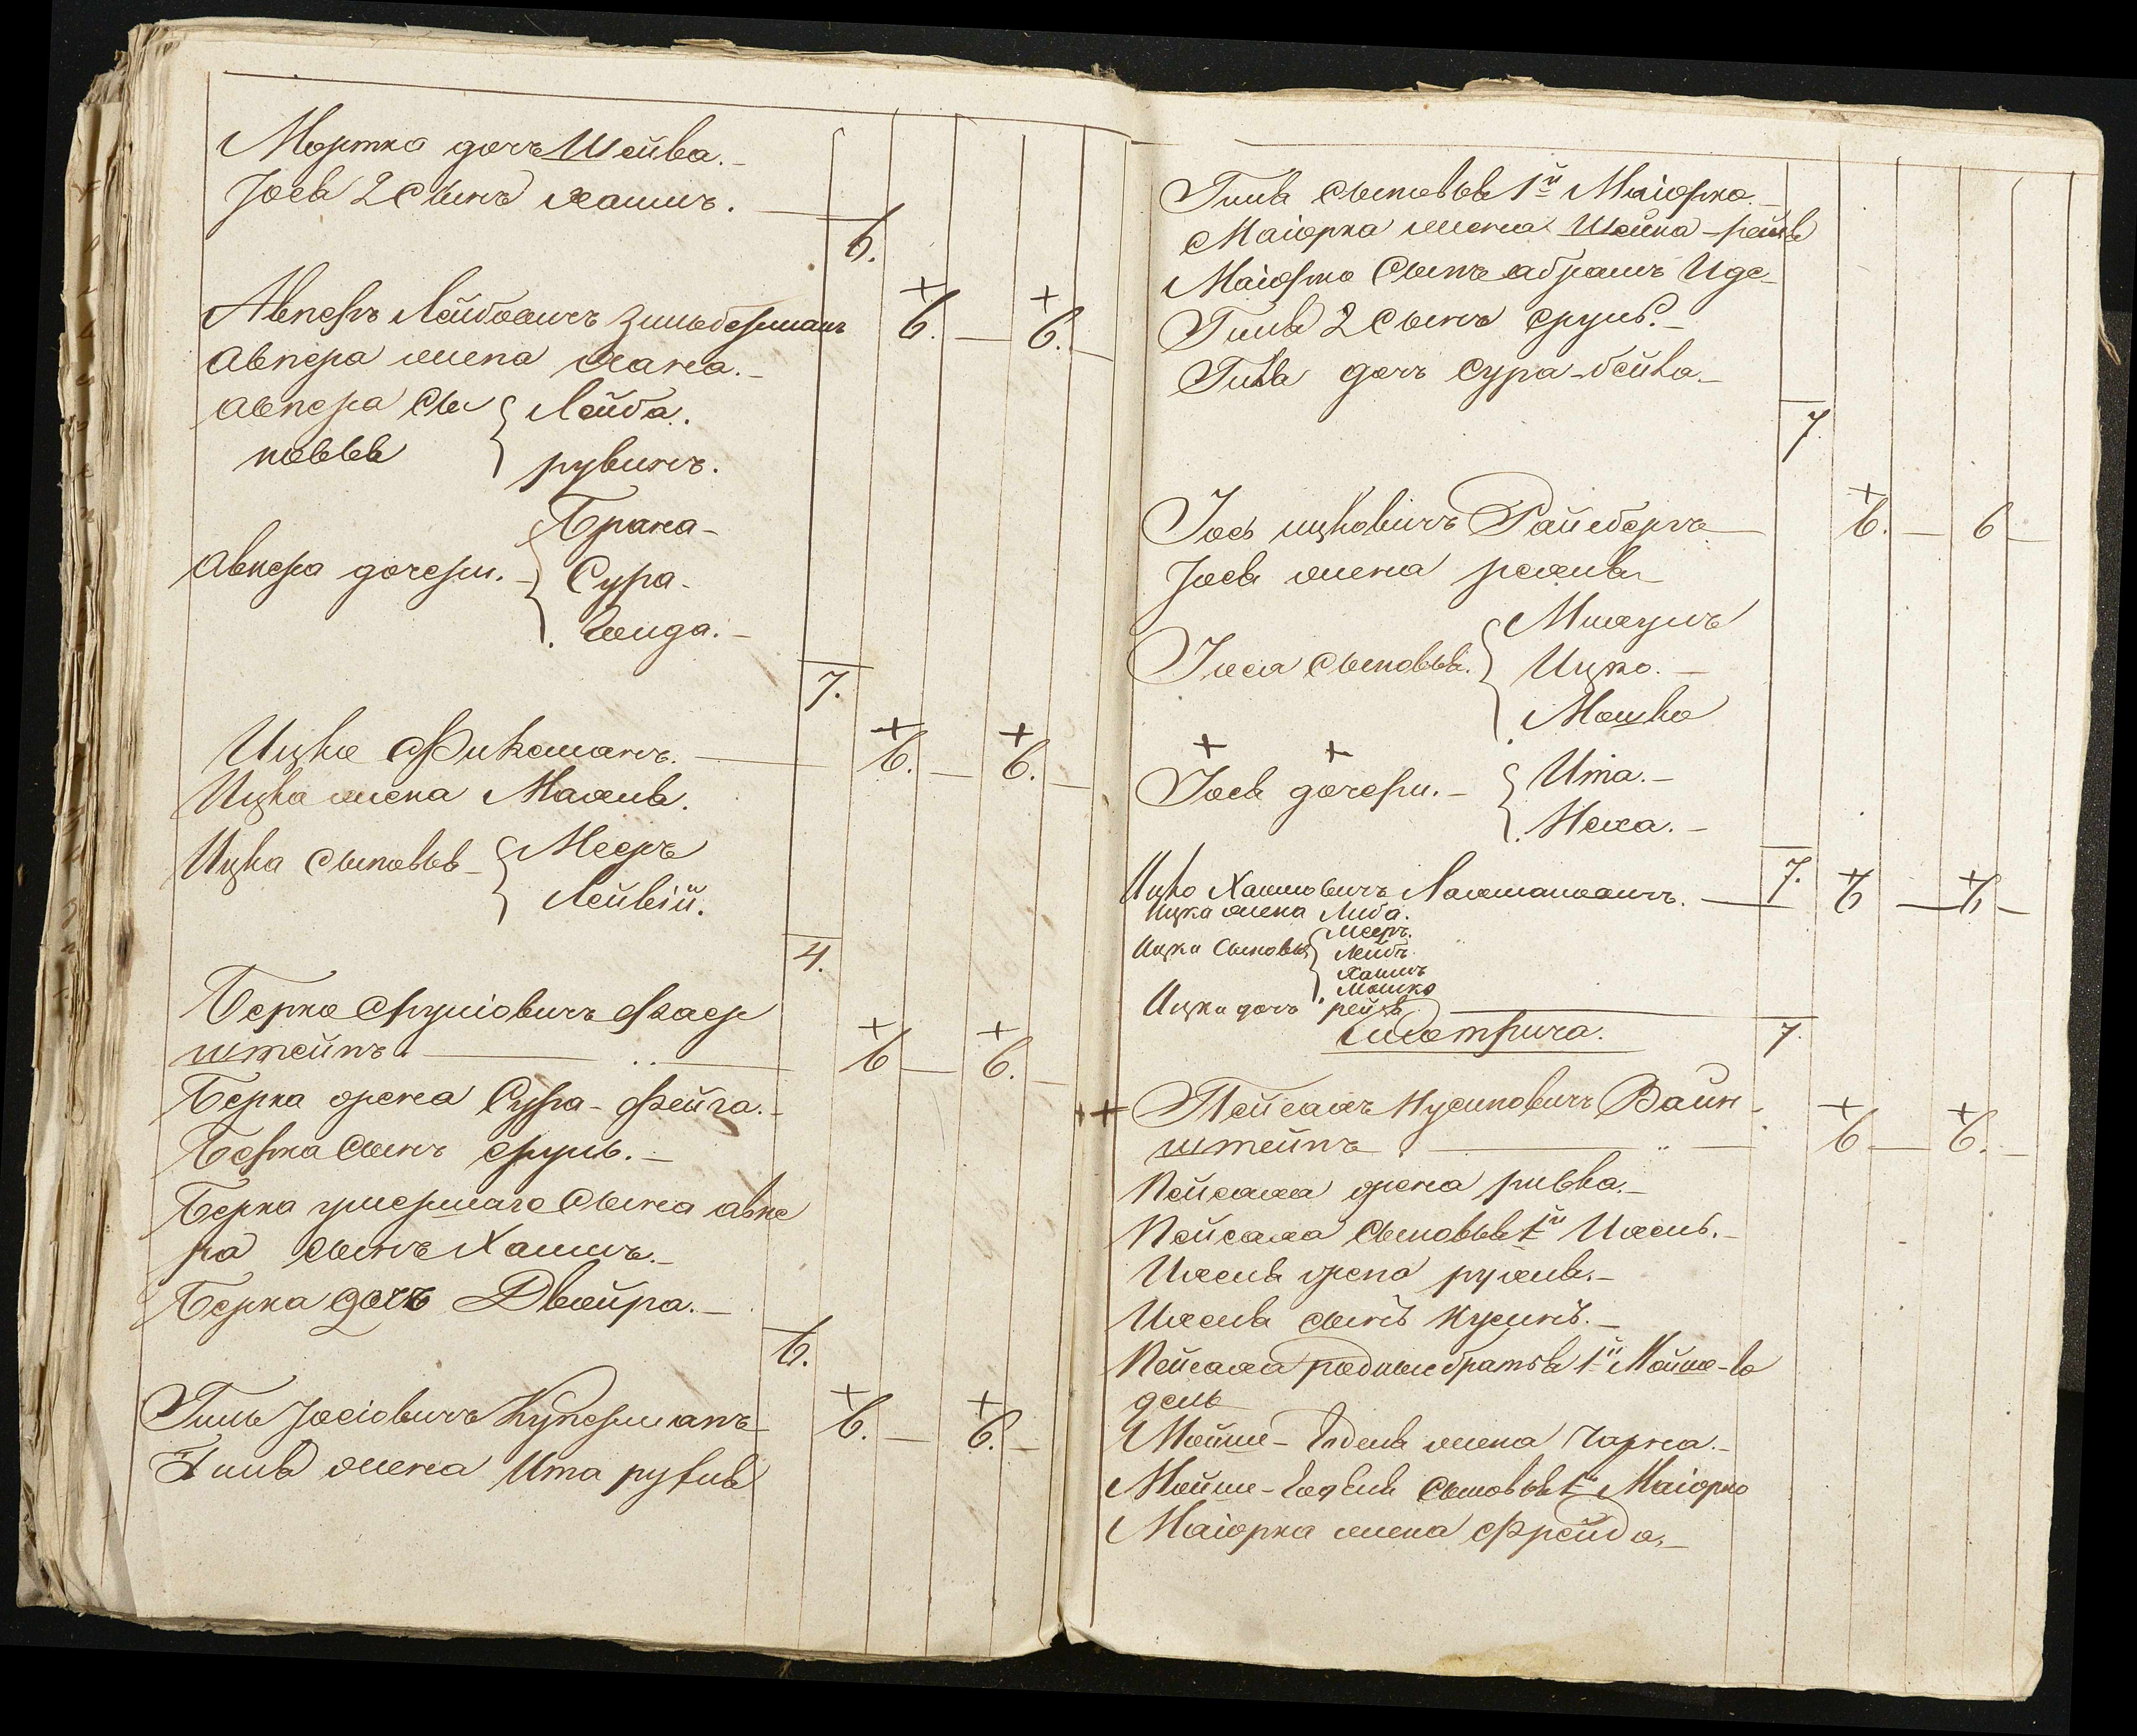 Мортка дочъ Шейва.-
Јося 2 Сынъ хаимъ.
6.
Авнеръ Лейбовичъ Зильберманъ 6. — 6. —
Авнера жена Хана.-
Авнера Сы Лейба.
новья рувинъ.
Брана-
Авнера дочери.- Сура-
Гинда.-
7.
Ицко Фиксманъ. 6. — 6. —
Ицка жена Малка.
Ицка Сыновья Мееръ
Лейвій.
4.
Берко Сруліовичъ Фаер
штейнъ. 6 — 6. —
Берка жена Сура-Фейга.-
Берка Сынъ сруль.-
Берка умершаго Сына авне
ра сынъ Хаимъ.-
Берка дочъ Двойра.-
6.
Гиль Јосіовичъ Куперманъ 6. — 6. —
Гиля жена Ита рухля
Гиля Сыновья 1й Маіорко.-
Маіорка жена Шейна-рейзя
Маіорка Сынъ абрамъ Иде-
Гиля 2 Сынъ сруль.-
Гиля дочъ Сура-бейла-
7.
Јось ицковичъ Райзбергъ 6. — 6 —
Јося жена рехля
Михуль
Јося Сыновья. Ицко.-
Мошко
Јося дочери.- Ита.-
Неха.-
7.
Ицко Хаимовичъ 6 — 6 —
Ицки жена Либа.
Мееръ.
Ицки Сыновья Лейбъ
Хаимъ
Мошко
Ицки дочъ рейзя
7.
Пейсахъ Нусиновичъ Вайн-
штейнъ 6 — 6. —
Пейсаха жена ривка.-
Пейсаха Сыновья 1й Ихель.-
Ихеля жена рухля.-
Ихеля сынъ Нусинъ.-
Пейсаха родные братья 1й Мойше-Го
дель
Мойше-Годеля жена Чарна.-
Мойше-Годеля Сыновья 1й Маіорко
Маіорка жена Фрейда.-